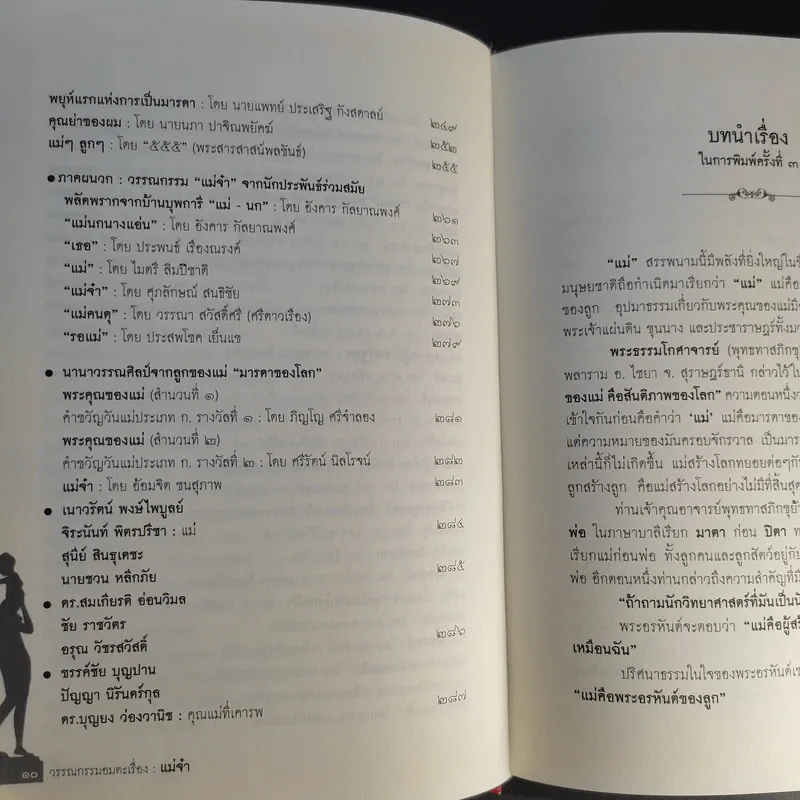 พยุห์แรกแห่งการเป็นมารดา : โดย นายแพทย์ ประเสริฐ กังสดาลย์ ๒๔๙
คุณย่าของผม : โดย นายนภา ปาจิณพยัคฆ์ ๒๕๒
แม่ๆ ลูกๆ : โดย "๕๕๕" (พระสารสาสน์พลขันธ์) ๒๕๕
● ภาคผนวก : วรรณกรรม "แม่จ๋า" จากนักประพันธ์ร่วมสมัย
พลัดพรากจากบ้านบุพการี "แม่ - นก" : โดย อังคาร กัลยาณพงศ์ ๒๖๑
"แม่นกนางแอ่น" : โดย อังคาร กัลยาณพงศ์ ๒๖๓
"เธอ" : โดย ประพนธ์ เรืองณรงค์ ๒๖๗
"แม่" : โดย ไมตรี ลิมปิชาติ ๒๖๙
"แม่จ๋า" : โดย ศุภลักษณ์ สนธิชัย ๒๗๓
"แม่คนดุ" : โดย วรรณา สวัสดิ์ศรี (ศรีดาวเรือง) ๒๗๖
"รอแม่" : โดย ประสพโชค เย็นแข ๒๗๙
● นานาวรรณศิลป์จากลูกของแม่ "มารดาของโลก"
พระคุณของแม่ (สำนวนที่ ๑)
คำขวัญวันแม่ประเภท ก. รางวัลที่ ๑ : โดย ภิญโญ ศรีจำลอง ๒๘๑
พระคุณของแม่ (สำนวนที่ ๒)
คำขวัญวันแม่ประเภท ก. รางวัลที่ ๒ : โดย ศรีรัตน์ นิลโรจน์ ๒๘๒
แม่จ๋า : โดย อ้อมจิต ชนสุภาพ ๒๘๓
● เนาวรัตน์ พงษ์ไพบูลย์
จิระนันท์ พิตรปรีชา : แม่ ๒๘๔
สุนีย์ สินธุเดชะ
นายชวน หลีกภัย ๒๘๕
● ดร.สมเกียรติ อ่อนวิมล
ชัย ราชวัตร
อรุณ วัชรสวัสดิ์ ๒๘๖
● ขรรค์ชัย บุนปาน
ปัญญา นิรันดร์กุล
ดร.บุญยง ว่องวานิช : คุณแม่ที่เคารพ ๒๘๗
๑๐ วรรณกรรมอมตะเรื่อง : แม่จ๋า
บทนำเรื่อง
ในการพิมพ์ครั้งที่ ๓
"แม่" สรรพนามนี้มีพลังที่ยิ่งใหญ่ใน
มนุษยชาติถือกำเนิดมาเรียกว่า "แม่" แม่คือ
ของลูก อุปมาธรรมเกี่ยวกับพระคุณของแม่
พระเจ้าแผ่นดิน ขุนนาง และประชาราษฎร์ทั้ง
พระธรรมโกศาจารย์ (พุทธทาสภิกขุ)
พลาราม อ. ไชยา จ. สุราษฎร์ธานี กล่าวไว้ใน
ของแม่ คือสันติภาพของโลก" ความตอนหนึ่ง
เข้าใจกันก่อนคือคำว่า 'แม่' แม่คือมารดาของ
แต่ความหมายของมันครอบจักรวาล เป็น
เหล่านี้ก็ไม่เกิดขึ้น แม่สร้างโลกทยอยต่อๆกัน
ลูกสร้างลูก คือแม่สร้างโลกอย่างไม่มีที่สิ้นสุด
ท่านเจ้าคุณอาจารย์พุทธทาสภิกขุ
พ่อ ในภาษาบาลีเรียก มาตา ก่อน ปิตา
เรียกแม่ก่อนพ่อ ทั้งลูกคนและลูกสัตว์อยู่กับ
พ่อ อีกตอนหนึ่งท่านกล่าวถึงความสำคัญที่
"ถ้าถามนักวิทยาศาสตร์ที่มันเป็น
พระอรหันต์จะตอบว่า "แม่คือผู้
เหมือนฉัน"
ปริศนาธรรมในใจของพระอรหันต์
"แม่คือพระอรหันต์ของลูก"